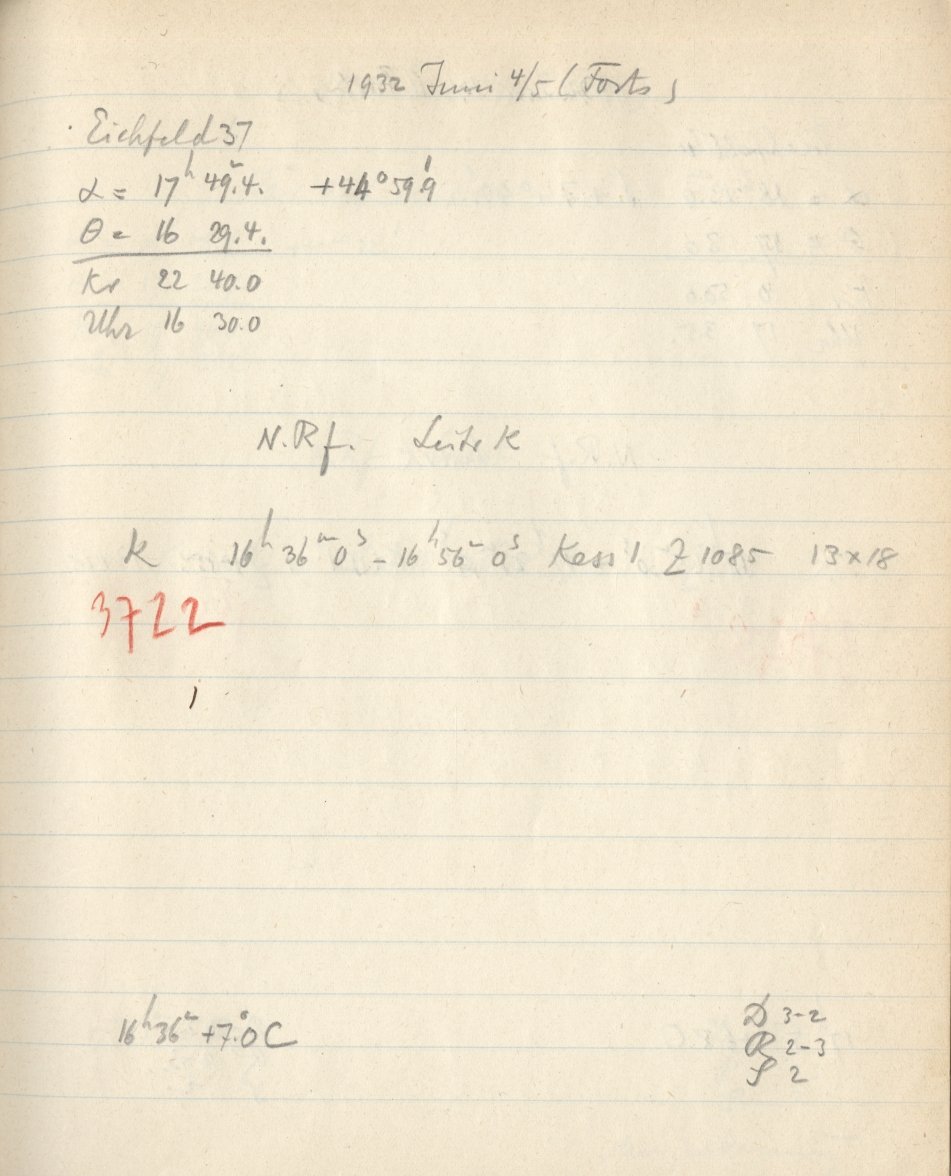 1932 Juni 4/5 (Forts)
Eichfeld 37
α = 17ʰ 49ᵐ.4. +44° 59'.9
θ = 16 29.4.
Kr 22 40.0
Uhr 16 30.0
N.Rf. Leitr K
K 16ʰ 36ᵐ 0ˢ - 16ʰ 56ᵐ 0ˢ Kass 1 Z 1085 13 x 18
3722
16ʰ 36ᵐ +7.°0 C
D 3-2
R 2-3
S 2